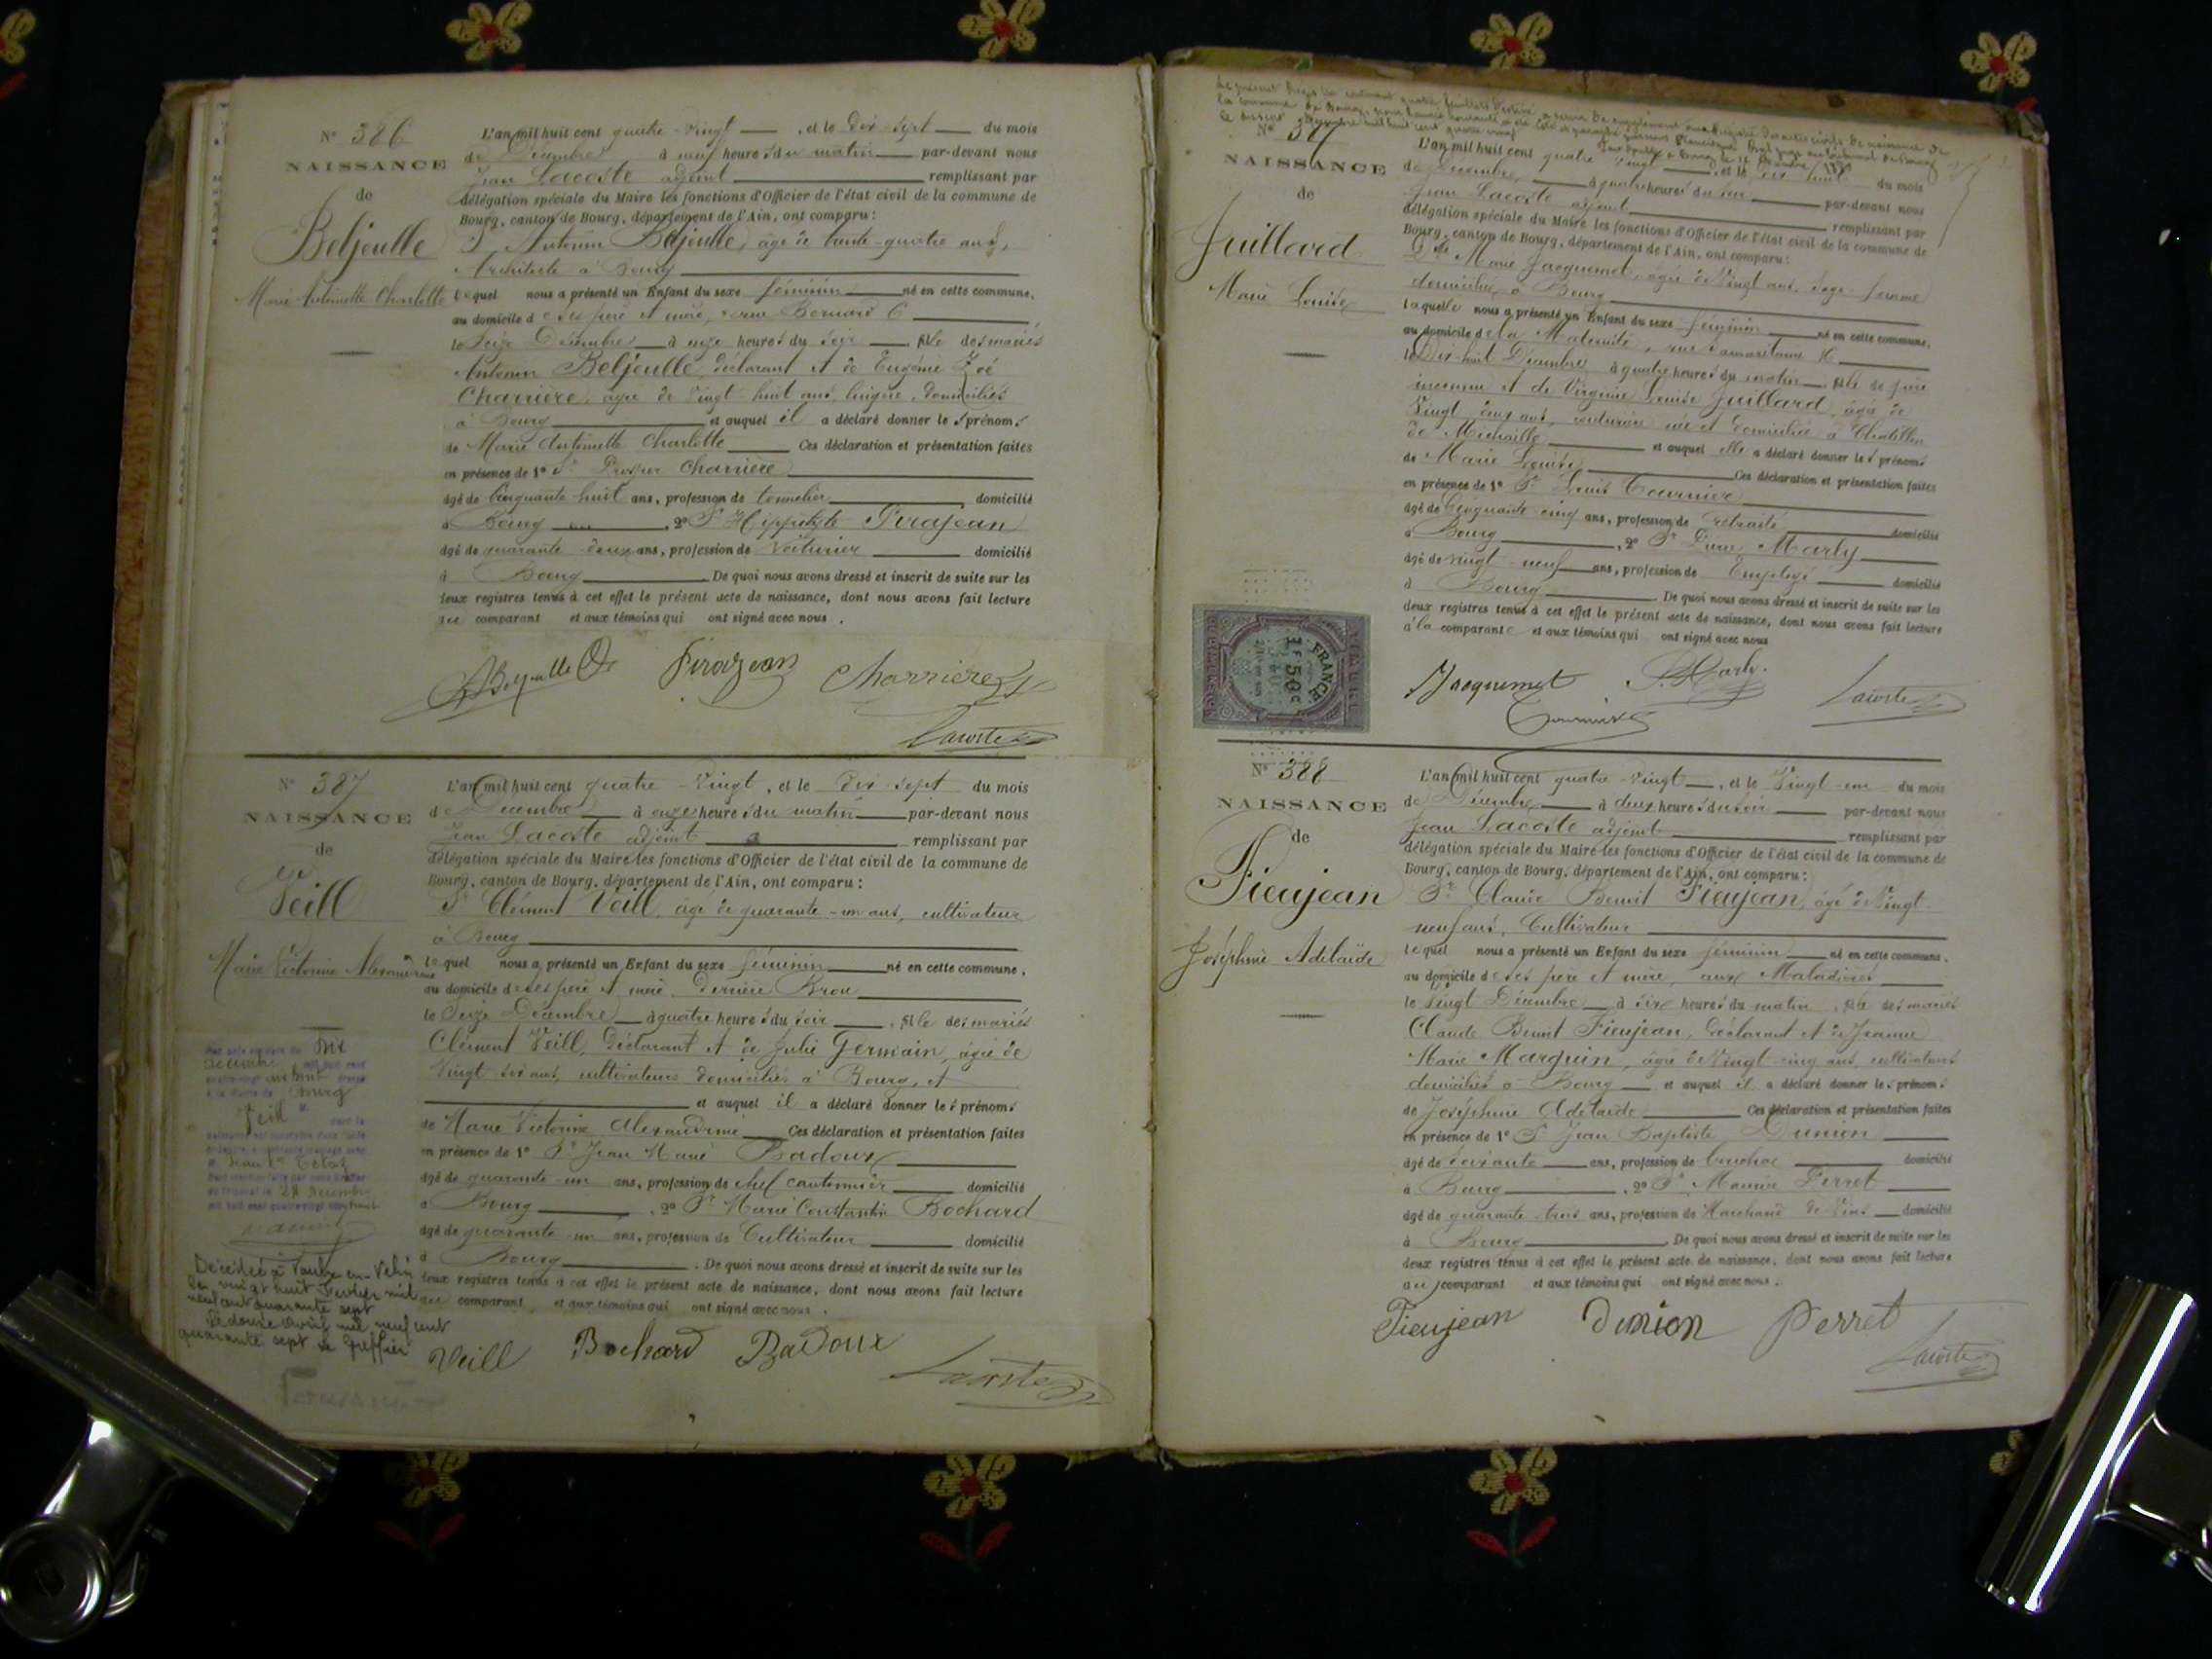 N° 386
NAISSANCE
de
Beljeulle
Marie Antoinette Charlotte
L'an mil huit cent quatre-vingt, et le dix-sept du mois
de Décembre à neuf heures du matin par-devant nous
Jean Lacoste adjoint remplissant par
délégation spéciale du Maire les fonctions d'Officier de l'état civil de la commune de
Bourg, canton de Bourg, département de l'Ain, ont comparu :
Sr Antonin Beljeulle, âgé de trente-quatre ans,
Architecte à Bourg
lequel nous a présenté un Enfant du sexe féminin né en cette commune,
au domicile de ses père et mère, rue Bernard 6
le Seize Décembre à onze heures du soir, fille des mariés
Antonin Beljeulle, déclarant et de Eugénie Zoé
Charrière, âgée de vingt-huit ans, lingère, domiciliés
à Bourg et auquel il a déclaré donner les prénoms
de Marie Antoinette Charlotte Ces déclaration et présentation faites
en présence de 1° Sr Prosper Charrière
âgé de Cinquante-huit ans, profession de tonnelier domicilié
à Bourg, 2° Sr Hippolyte Pirajean
âgé de quarante-deux ans, profession de Voiturier domicilié
à Bourg De quoi nous avons dressé et inscrit de suite sur les
deux registres tenus à cet effet le présent acte de naissance, dont nous avons fait lecture
au comparant et aux témoins qui ont signé avec nous.
Beljeulle Pirajean Charrière
Lacoste
N° 387
NAISSANCE
de
Veill
Marie Victorine Alexandrine
L'an mil huit cent quatre-vingt, et le dix-sept du mois
de Décembre à onze heures du matin par-devant nous
Jean Lacoste adjoint remplissant par
délégation spéciale du Maire les fonctions d'Officier de l'état civil de la commune de
Bourg, canton de Bourg, département de l'Ain, ont comparu :
Sr Clément Veill, âgé de quarante-un ans, cultivateur
à Bourg
lequel nous a présenté un Enfant du sexe féminin né en cette commune,
au domicile de ses père et mère, derrière Brou
le Seize Décembre à quatre heures du soir, fille des mariés
Clément Veill, déclarant et de Julie Germain, âgée de
vingt-six ans, cultivateurs domiciliés à Bourg, et
et auquel il a déclaré donner les prénoms
de Marie Victorine Alexandrine Ces déclaration et présentation faites
en présence de 1° Sr Jean Marie Badoux
âgé de quarante-un ans, profession de chef cantonnier domicilié
à Bourg, 2° Sr Marie Constantin Bochard
âgé de quarante-un ans, profession de Cultivateur domicilié
à Bourg. De quoi nous avons dressé et inscrit de suite sur les
deux registres tenus à cet effet le présent acte de naissance, dont nous avons fait lecture
au comparant et aux témoins qui ont signé avec nous.
Décédée à Vaulx-en-Velin
le vingt huit Février mil
neuf cent quarante sept
Le douze Avril mil neuf cent
quarante sept Le Greffier
Veill Bochard Badoux
Lacoste
N° 387
NAISSANCE
de
Juillard
Marie Louise
L'an mil huit cent quatre vingt, et le dix huit du mois
de Décembre à quatre heures du soir par-devant nous
Jean Lacoste adjoint remplissant par
délégation spéciale du Maire les fonctions d'Officier de l'état civil de la commune de
Bourg, canton de Bourg, département de l'Ain, ont comparu :
Dlle Marie Jacquemet, âgée de vingt ans, sage-femme
domiciliée à Bourg
laquelle nous a présenté un Enfant du sexe féminin né en cette commune,
au domicile de la Maternité, rue Samaritaine 16
le Dix-huit Décembre à quatre heures du matin, fille de père
inconnu et de Virginie Louise Juillard, âgée de
Vingt-deux ans, couturière née et domiciliée à Chatillon
de Michaille et auquel elle a déclaré donner les prénoms
de Marie Louise Ces déclaration et présentation faites
en présence de 1° Sr Louis Tournier
âgé de Cinquante-cinq ans, profession de retraité domicilié
à Bourg, 2° Sr Pierre Marly
âgé de vingt-neuf ans, profession de Employé domicilié
à Bourg. De quoi nous avons dressé et inscrit de suite sur les
deux registres tenus à cet effet le présent acte de naissance, dont nous avons fait lecture
à la comparante et aux témoins qui ont signé avec nous
FRANCE
1 F 50 C
Jacquemet Marly Lacoste
Tournier
N° 388
NAISSANCE
de
Fieujean
Joséphine Adélaïde
L'an mil huit cent quatre-vingt, et le Vingt-un du mois
de Décembre à deux heures du soir par-devant nous
Jean Lacoste adjoint remplissant par
délégation spéciale du Maire les fonctions d'Officier de l'état civil de la commune de
Bourg, canton de Bourg, département de l'Ain, ont comparu :
Sr Claude Benoit Fieujean, âgé de Vingt-
neuf ans, Cultivateur
lequel nous a présenté un Enfant du sexe féminin né en cette commune,
au domicile de ses père et mère, aux Maladières
le Vingt Décembre à six heures du matin, fille des mariés
Claude Benoit Fieujean, déclarant et de Jeanne
Marie Marguin, âgée de Vingt-cinq ans, cultivateurs
domiciliés à Bourg et auquel il a déclaré donner les prénoms
de Joséphine Adélaïde Ces déclaration et présentation faites
en présence de 1° Sr Jean Baptiste Dunion
âgé de soixante ans, profession de boucher domicilié
à Bourg, 2° Sr Maurice Perret
âgé de quarante-trois ans, profession de Marchand de Vins domicilié
à Bourg De quoi nous avons dressé et inscrit de suite sur les
deux registres tenus à cet effet le présent acte de naissance, dont nous avons fait lecture
au comparant et aux témoins qui ont signé avec nous.
Fieujean Dunion Perret
Lacoste